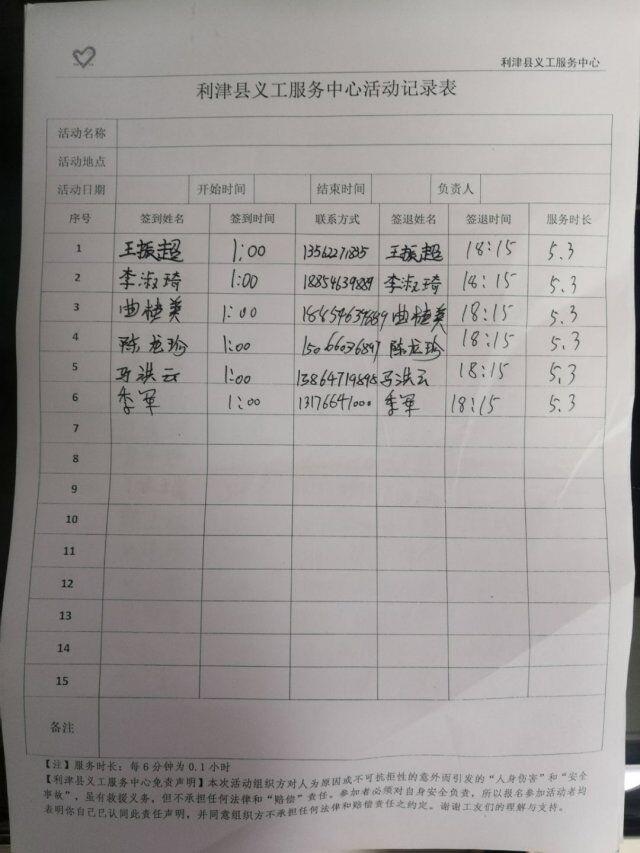 利津县义工服务中心
利津县义工服务中心活动记录表
活动名称
活动地点
活动日期 开始时间 结束时间 负责人
序号 签到姓名 签到时间 联系方式 签退姓名 签退时间 服务时长
1 王振超 1:00 13562271835 王振超 18:15 5.3
2 李淑琦 1:00 18854639889 李淑琦 18:15 5.3
3 曲植美 1:00 曲植美 18:15 5.3
4 陈龙珍 1:00 15066036897 陈龙珍 18:15 5.3
5 马洪云 1:00 13864719898 马洪云 18:15 5.3
6 季军 1:00 13176641000 季军 18:15 5.3
7
8
9
10
11
12
13
14
15
备注
【注】服务时长：每6分钟为0.1小时
【利津县义工服务中心免责声明】本次活动组织方对人为原因或不可抗拒性的意外而引发的“人身伤害”和“安全
事故”，虽有救援义务，但不承担任何法律和“赔偿”责任。参加者必须对自身安全负责，所以报名参加活动者均
表明你自己已认同此责任声明，并同意组织方不承担任何法律和赔偿责任之约定。谢谢工友们的理解与支持。